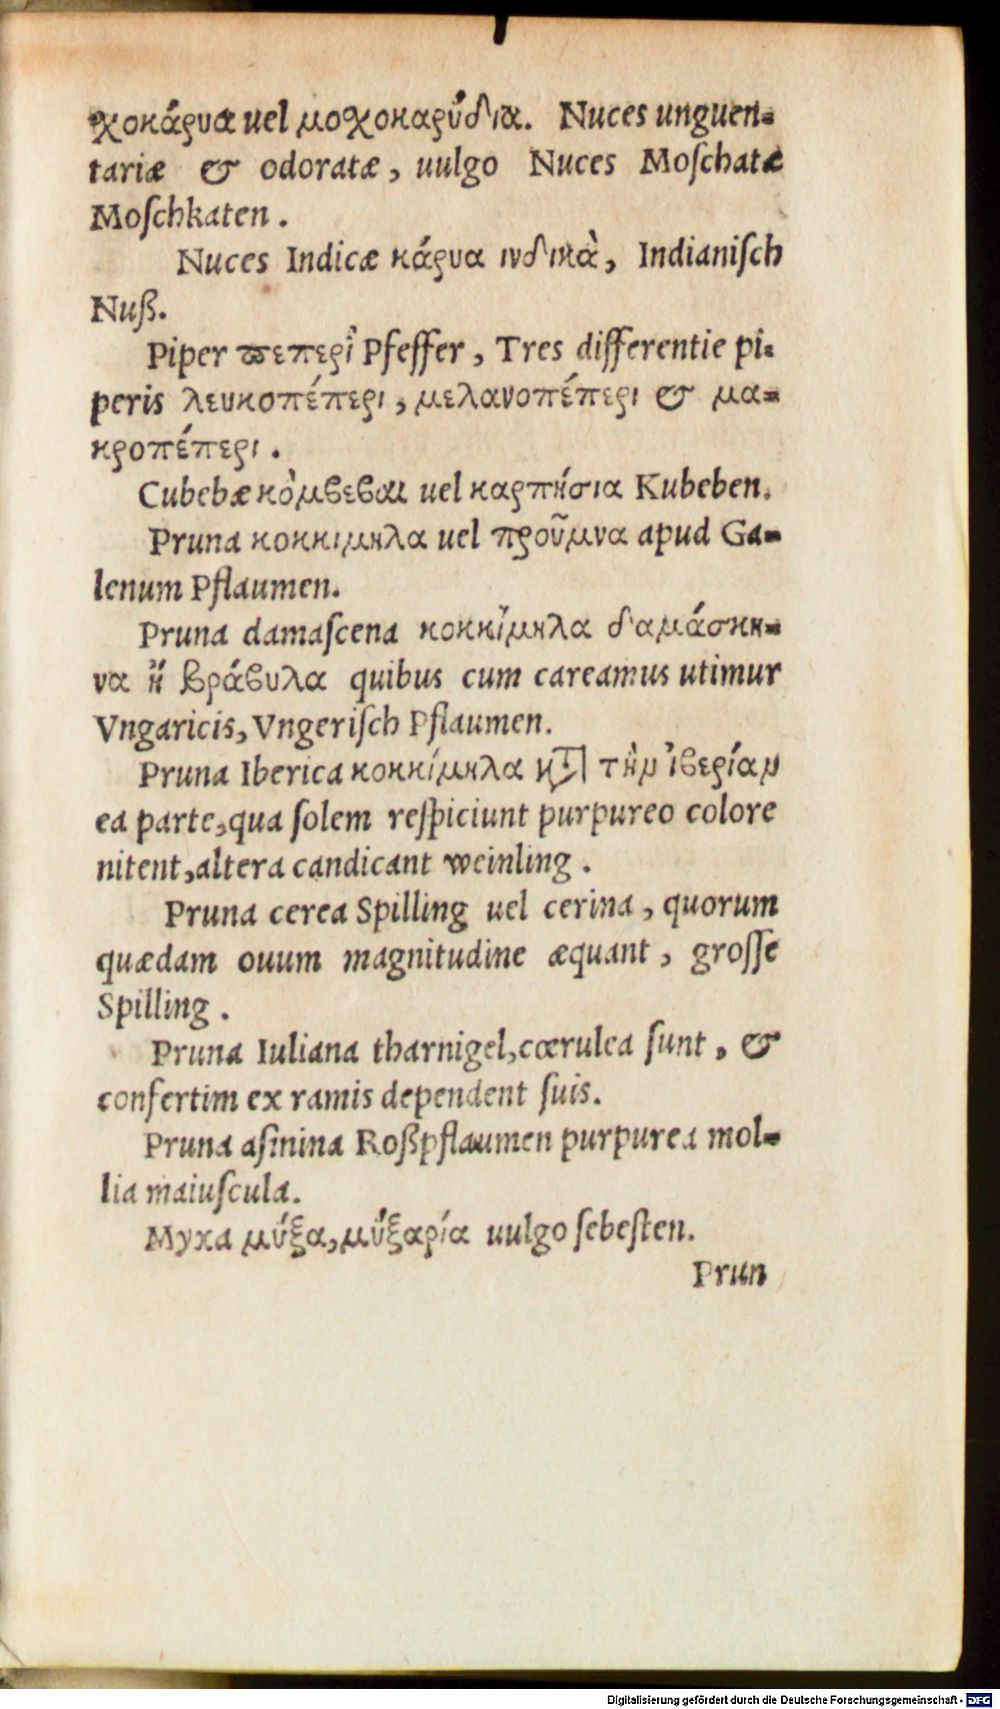 χοκάρυα uel μοχοκαρύδια. Nuces unguen-
tariæ & odoratæ, uulgo Nuces Moſchatæ
Moſchkaten.
Nuces Indicæ κάρυα ινδικὰ, Indianiſch
Nuß.
Piper ϖεπερὶ Pfeffer, Tres differentie pi-
peris λευκοπέπερι, μελανοπέπερι & μα-
κροπέπερι.
Cubebæ κὸμβεβαι uel καρπήσια Kubeben.
Pruna κοκκιμηλα uel προῦμνα apud Ga-
lenum Pflaumen.
Pruna damaſcena κοκκίμηλα δαμάσκη-
να ἢ βράβυλα quibus cum careamus utimur
Vngaricis, Vngeriſch Pflaumen.
Pruna Iberica κοκκίμηλα τὴν ἰβερίαν
ea parte, qua ſolem reſpiciunt purpureo colore
nitent, altera candicant weinling.
Pruna cerea Spilling uel cerina, quorum
quædam ouum magnitudine æquant, groſſe
Spilling.
Pruna Iuliana tharnigel, cœrulea ſunt, &
confertim ex ramis dependent ſuis.
Pruna aſinina Roßpflaumen purpurea mol-
lia maiuſcula.
Myxa μύξα, μύξαρία uulgo ſebeſten.
Prun
Digitalisierung gefördert durch die Deutsche Forschungsgemeinschaft - DFG